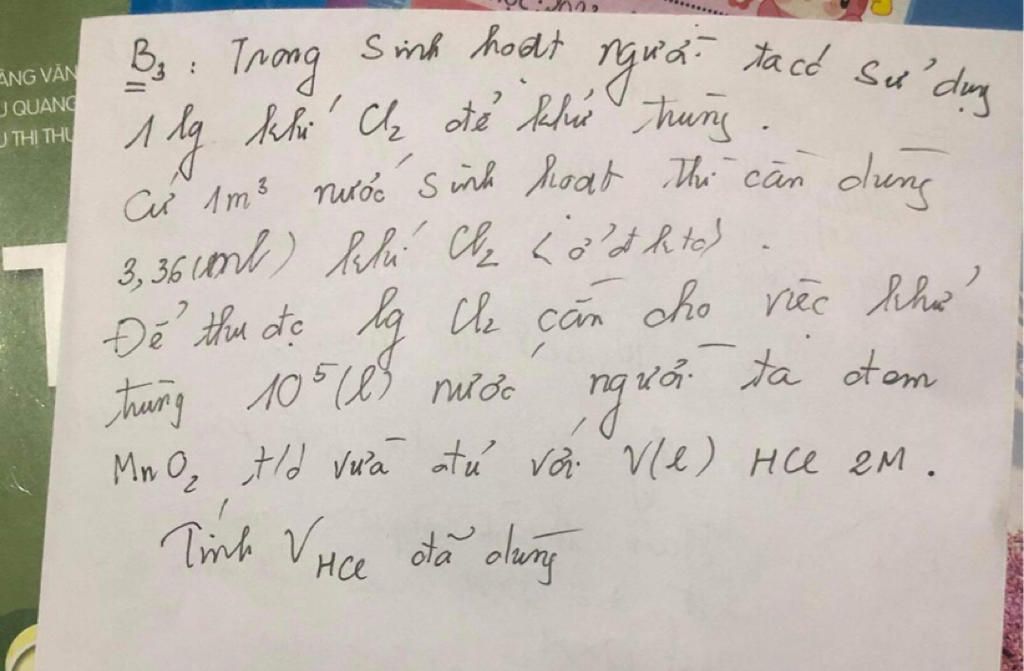 B3 : Trong sinh hoạt người ta có sử dụng
1 lg khí Cl2 để khử trùng.
Cứ 1m³ nước sinh hoạt thì cần dùng
3,36(ml) khí Cl2 (ở đktc).
Để thu đc lg Cl2 cần cho việc khử
trùng 10⁵(l) nước người ta đem
MnO2 t/d vừa đủ với V(l) HCl 2M.
Tính V HCl đã dùng
ĂNG VĂN
J QUANG
J THỊ THU
T